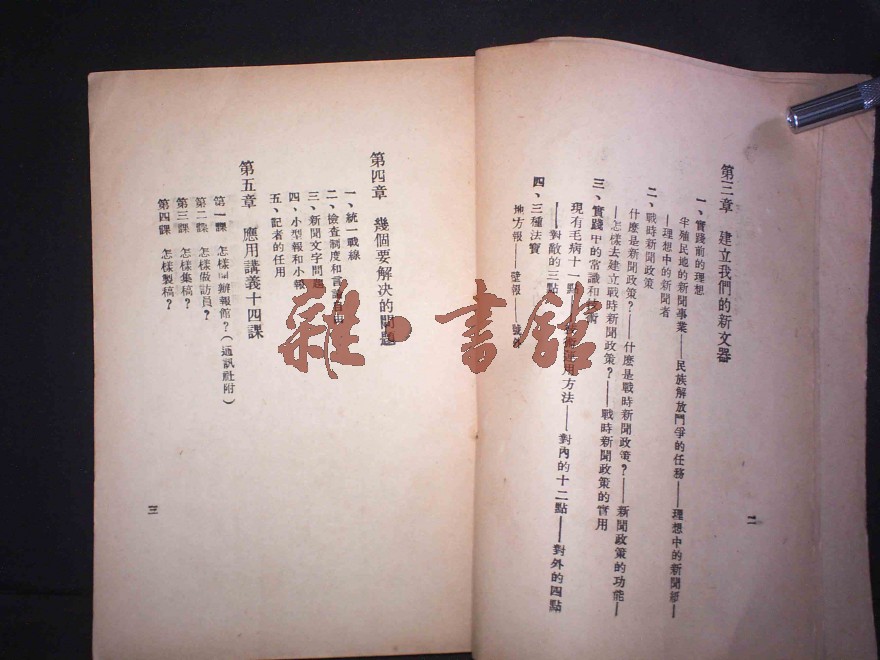 第三章 建立我們的新文器
一、實踐前的理想
半殖民地的新聞事業——民族解放鬥爭的任務——理想中的新聞紙—
—理想中的新聞者
二、戰時新聞政策
什麼是新聞政策?——什麼是戰時新聞政策?——新聞政策的功能—
—怎樣去建立戰時新聞政策?——戰時新聞政策的實用
三、實踐中的常識和技術
現有毛病十一點 運用方法——對內的十二點——對外的四點
——對敵的三點
四、三種法寶
地方報——壁報——號外
二
第四章 幾個要解決的問題
一、統一戰線
二、檢查制度和言論自由
三、新聞文字問題
四、小型報和小報
五、記者的任用
第五章 應用講義十四課
第一課 怎樣開辦報館?(通訊社附)
第二課 怎樣做訪員?
第三課 怎樣集稿?
第四課 怎樣製稿?
三
雜·書館